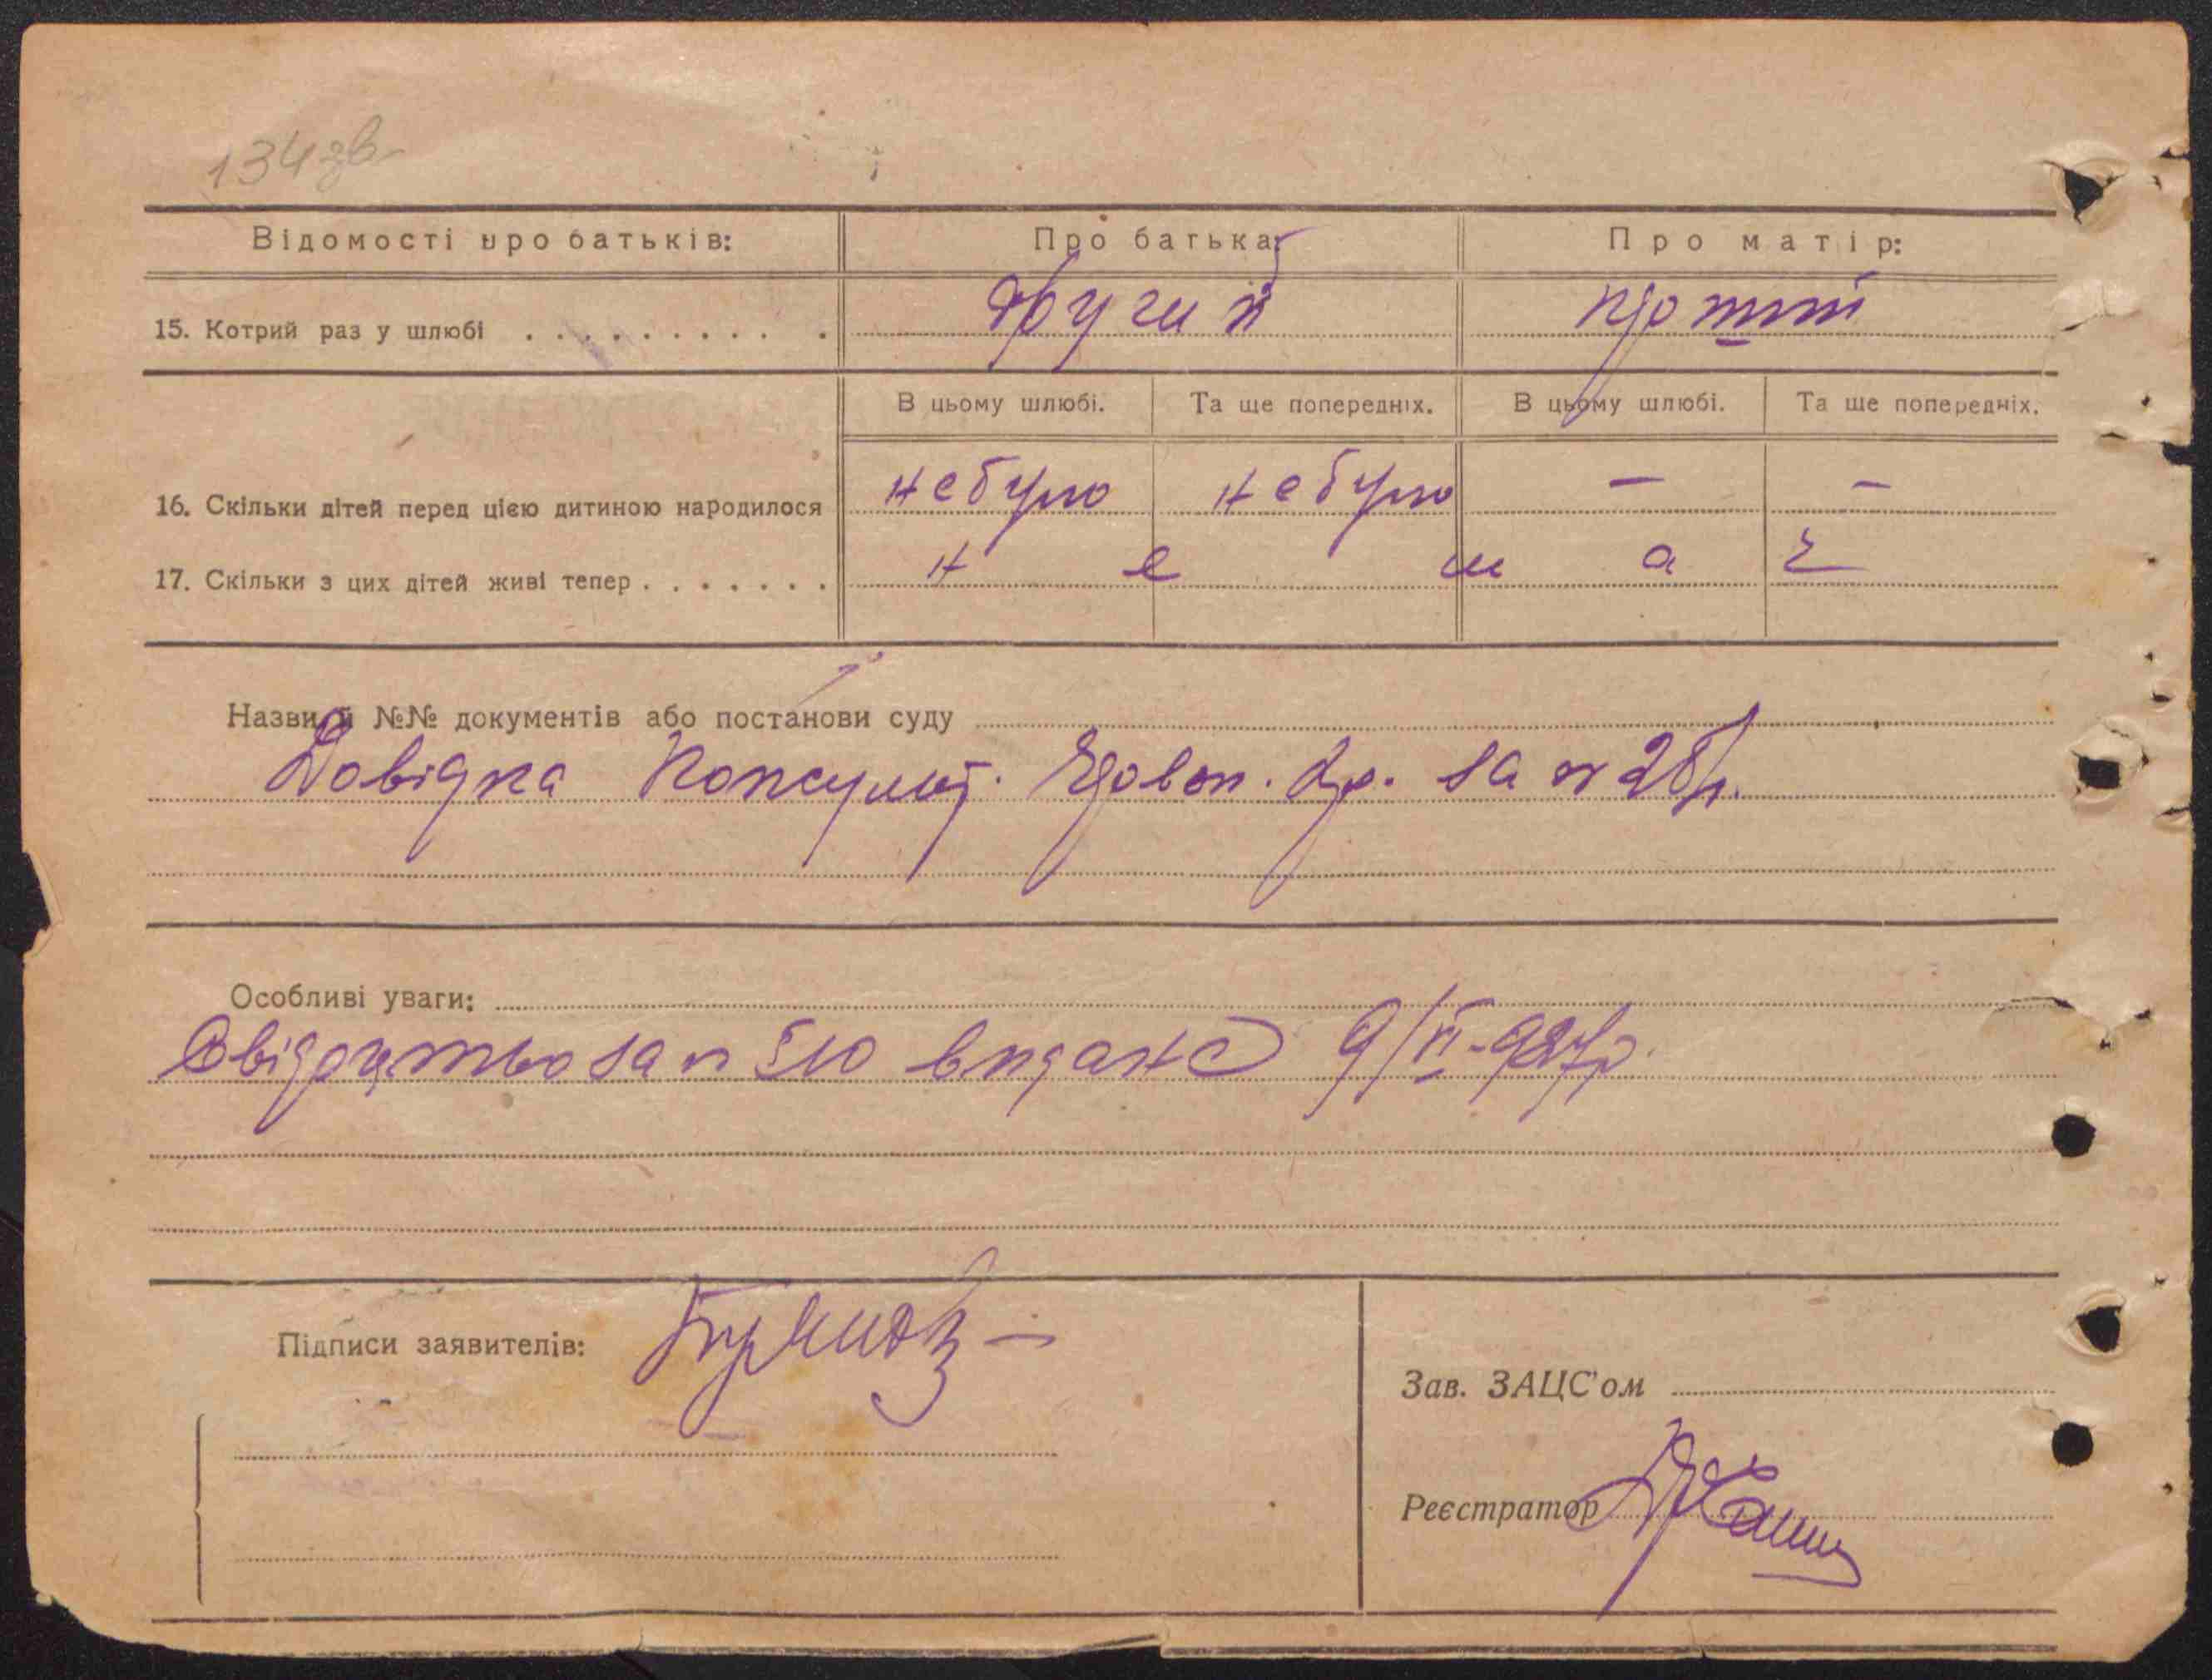 134 зв.
Відомості про батьків: Про батька: Про матір:
15. Котрий раз у шлюбі . . . . . . . . . другий
В цьому шлюбі. Та ще попередніх. В цьому шлюбі. Та ще попередніх.
16. Скільки дітей перед цією дитиною народилося небуло небуло — —
17. Скільки з цих дітей живі тепер . . . . . . . н е м а є
Назви й №№ документів або постанови суду
Довідка Консульт. за № 28
Особливі уваги:
Свідоцтво за № 510 видане 9/VI-927р.
Підписи заявителів:
Зав. ЗАЦС'ом
Реєстратор